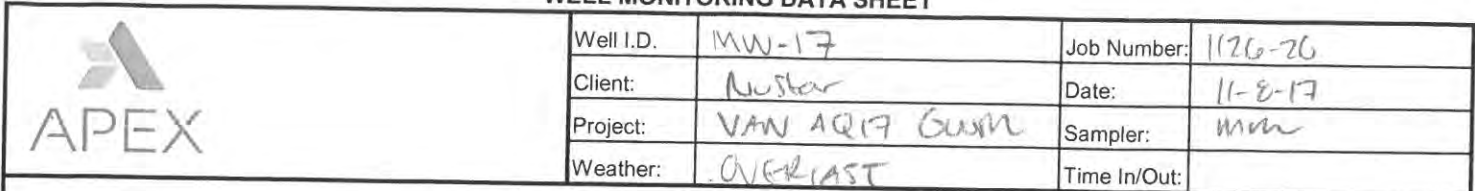 WELL MONITORING DATA SHEET
APEX
Well I.D. MW-17 Job Number: 1126-26
Client: NuStar Date: 11-8-17
Project: VAN AQ17 GWM Sampler: mm
Weather: OVERCAST Time In/Out: